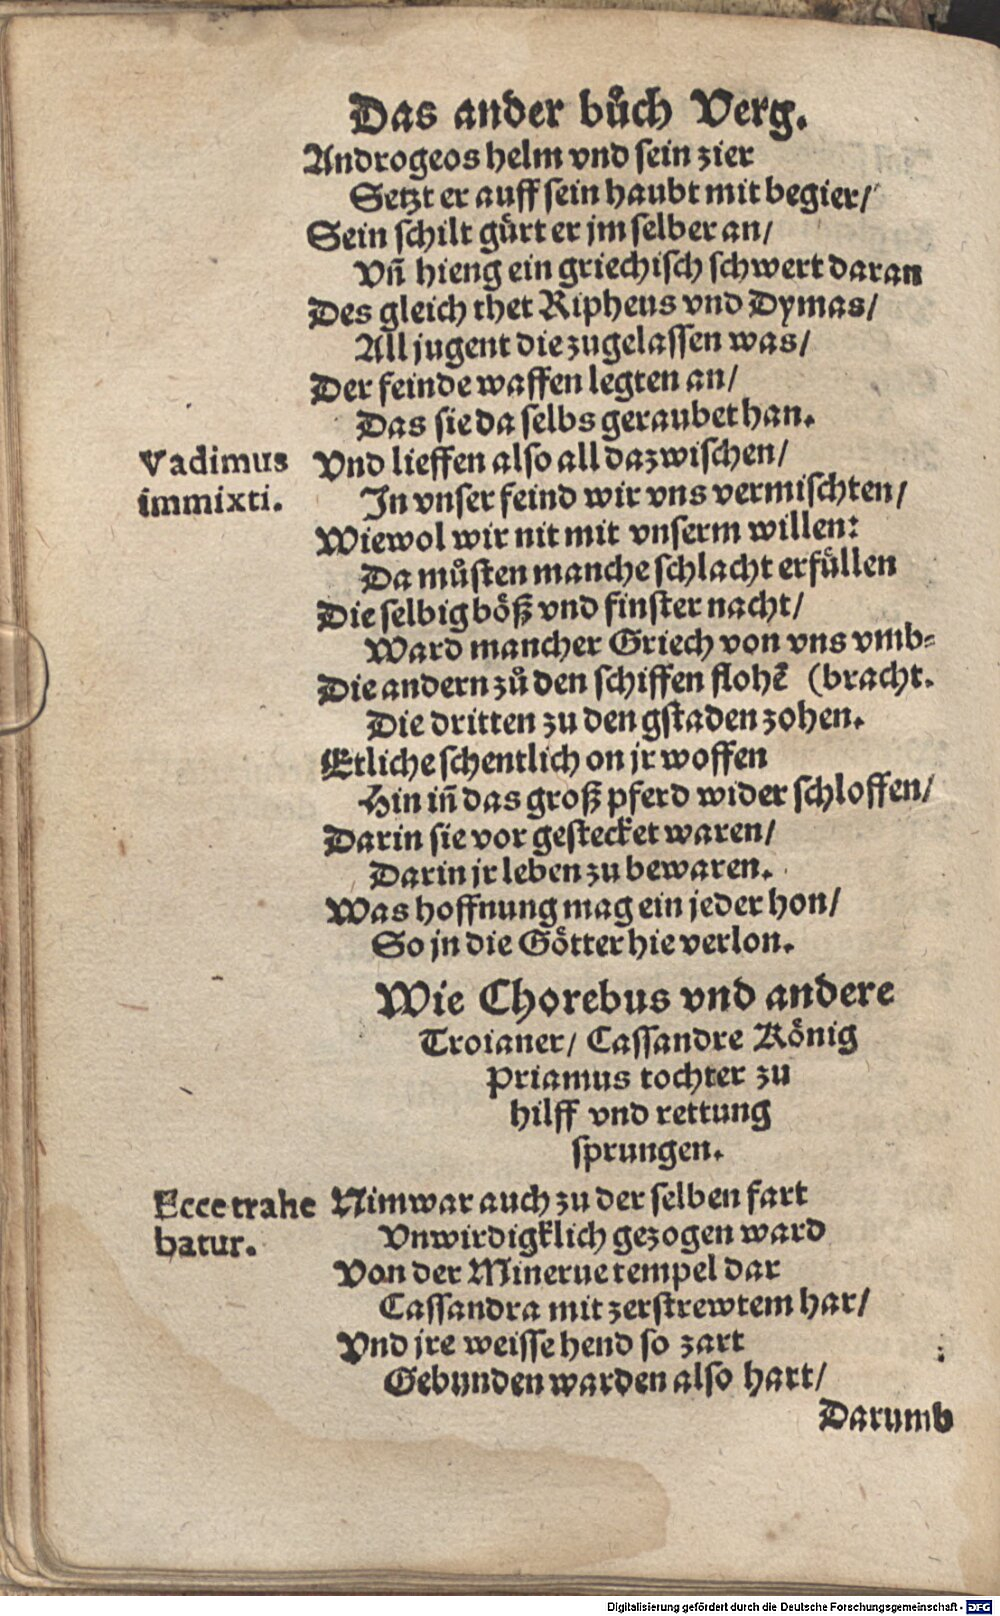 Das ander bůch Verg.
Androgeos helm vnd sein zier
Setzt er auff sein haubt mit begier/
Sein schilt gürt er jm selber an/
Vñ hieng ein griechisch schwert daran
Des gleich thet Ripheus vnd Dymas/
All jugent die zugelassen was/
Der feinde waffen legten an/
Das sie da selbs geraubet han.
Vadimus
immixti.
Vnd lieffen also all dazwischen/
In vnser feind wir vns vermischten/
Wiewol wir nit mit vnserm willen:
Da můsten manche schlacht erfüllen
Die selbig böß vnd finster nacht/
Ward mancher Griech von vns vmb-
Die andern zů den schiffen flohẽ (bracht.
Die dritten zu den gstaden zohen.
Etliche schentlich on jr woffen
Hin iñ das groß pferd wider schloffen/
Darin sie vor gestecket waren/
Darin jr leben zu bewaren.
Was hoffnung mag ein jeder hon/
So jn die Götter hie verlon.
Wie Chorebus vnd andere
Troianer/ Cassandre König
Priamus tochter zu
hilff vnd rettung
sprungen.
Ecce trahe
batur.
Nim war auch zu der selben fart
Vnwirdigklich gezogen ward
Von der Minerue tempel dar
Cassandra mit zerstrewtem har/
Vnd jre weisse hend so zart
Gebunden warden also hart/
Darumb
Digitalisierung gefördert durch die Deutsche Forschungsgemeinschaft - DFG